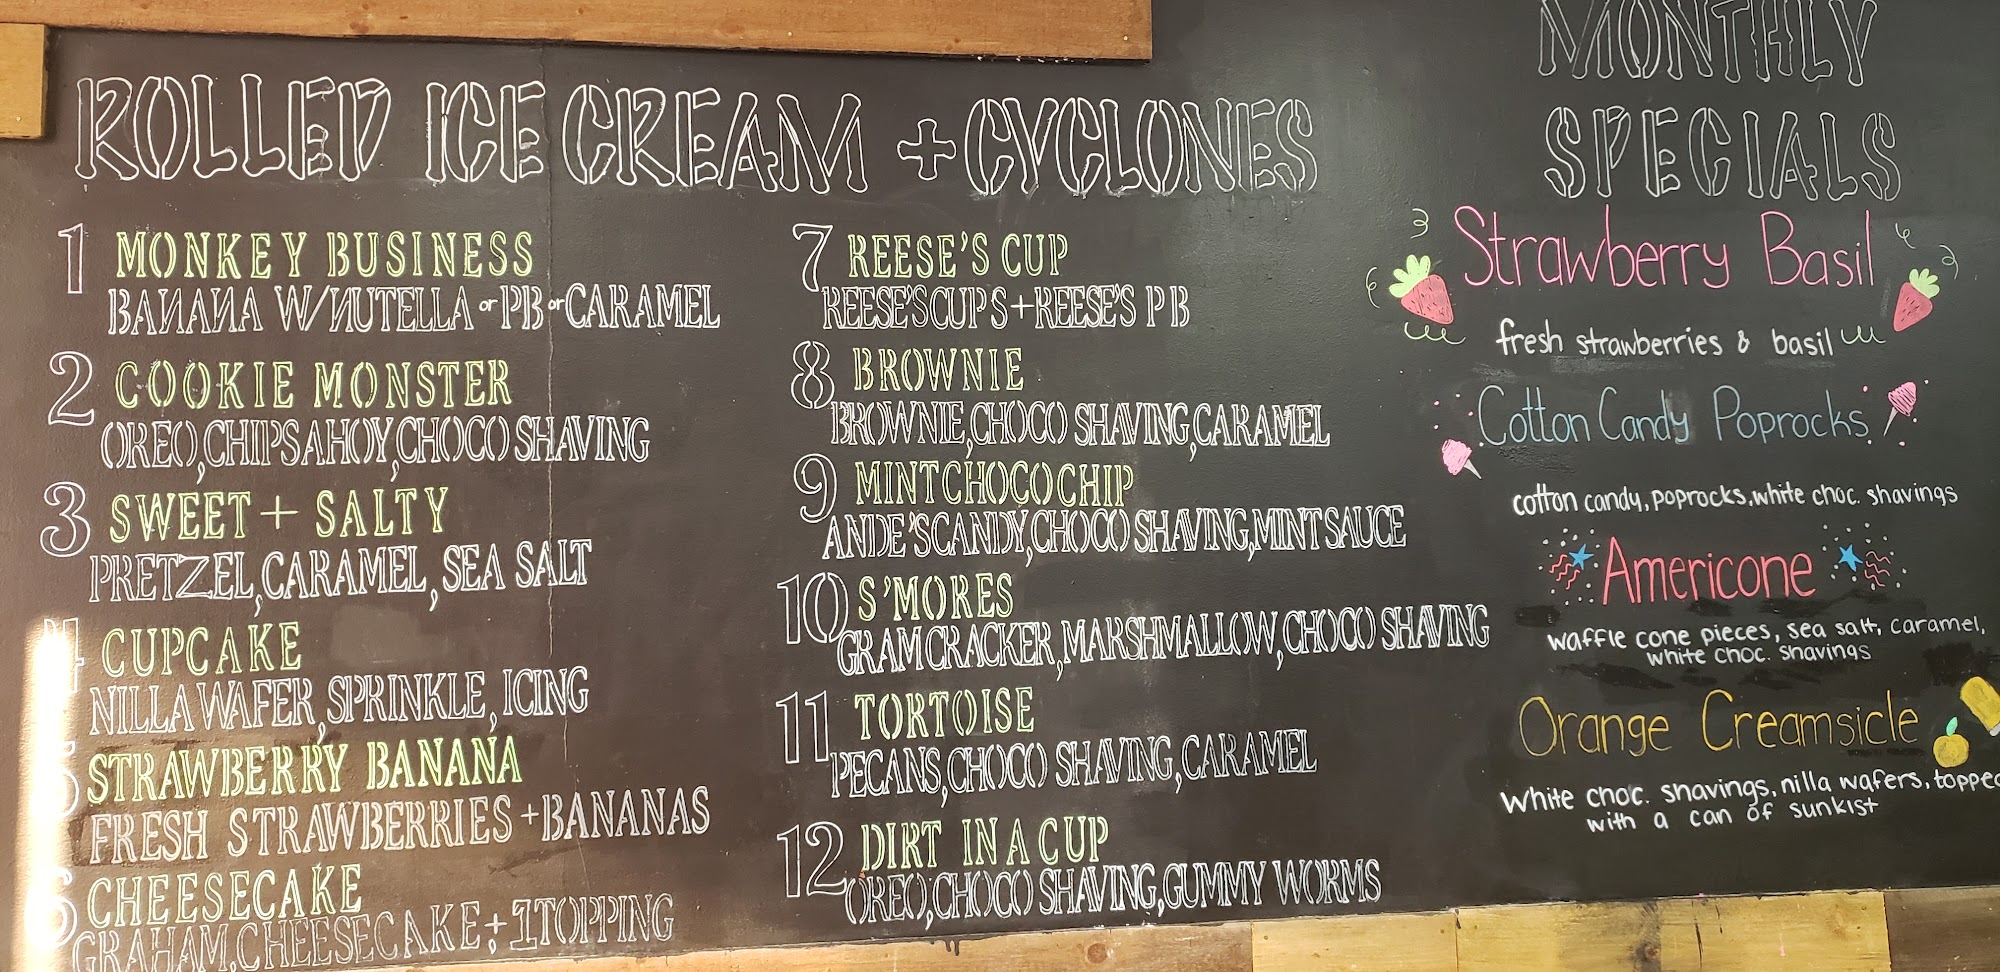 ROLLED ICE CREAM + CYCLONES
1 MONKEY BUSINESS
BANANA W/NUTELLA or PB or CARAMEL
2 COOKIE MONSTER
OREO, CHIPS AHOY, CHOCO SHAVING
3 SWEET + SALTY
PRETZEL, CARAMEL, SEA SALT
4 CUPCAKE
NILLA WAFER, SPRINKLE, ICING
5 STRAWBERRY BANANA
FRESH STRAWBERRIES + BANANAS
6 CHEESECAKE
GRAHAM, CHEESECAKE + 1 TOPPING
7 REESE'S CUP
REESE'S CUPS + REESE'S PB
8 BROWNIE
BROWNIE, CHOCO SHAVING, CARAMEL
9 MINT CHOCO CHIP
ANDE'S CANDY, CHOCO SHAVING, MINT SAUCE
10 S'MORES
GRAM CRACKER, MARSHMALLOW, CHOCO SHAVING
11 TORTOISE
PECANS, CHOCO SHAVING, CARAMEL
12 DIRT IN A CUP
OREO, CHOCO SHAVING, GUMMY WORMS
MONTHLY
SPECIALS
Strawberry Basil
fresh strawberries & basil
Cotton Candy Poprocks
cotton candy, poprocks, white choc. shavings
Americone
waffle cone pieces, sea salt, caramel,
white choc. shavings
Orange Creamsicle
white choc. shavings, nilla wafers, topped
with a can of sunkist